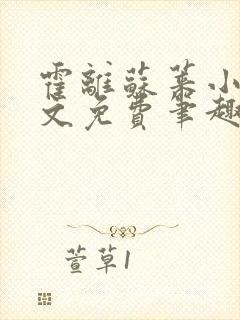 霍離蘇慕小
文免費筆趣
萱草1